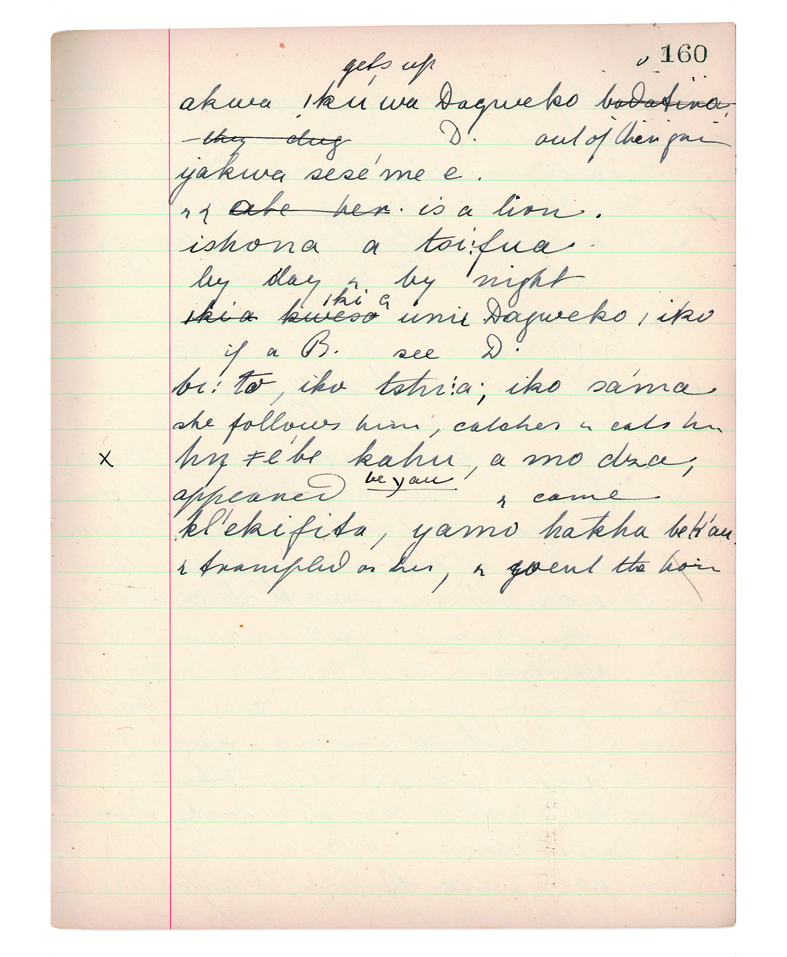 160
gets up
akwa ikúwa Dagweko badatina
they dug D. out of their
yakwa sesé'me e.
is a lion.
ishona a toi:fua.
by day & by night
iki a
ikia kweso unie Dagweko, iko
if a B. see D.
bi: to, iko tshi:a; iko sáma
she follows him, catches & eats him
x hṇ ≠ébe kahu, a mo dza,
appeared be yau & came
kl'ekifita, yamo hatcha bek'au.
& trampled on her, & went the